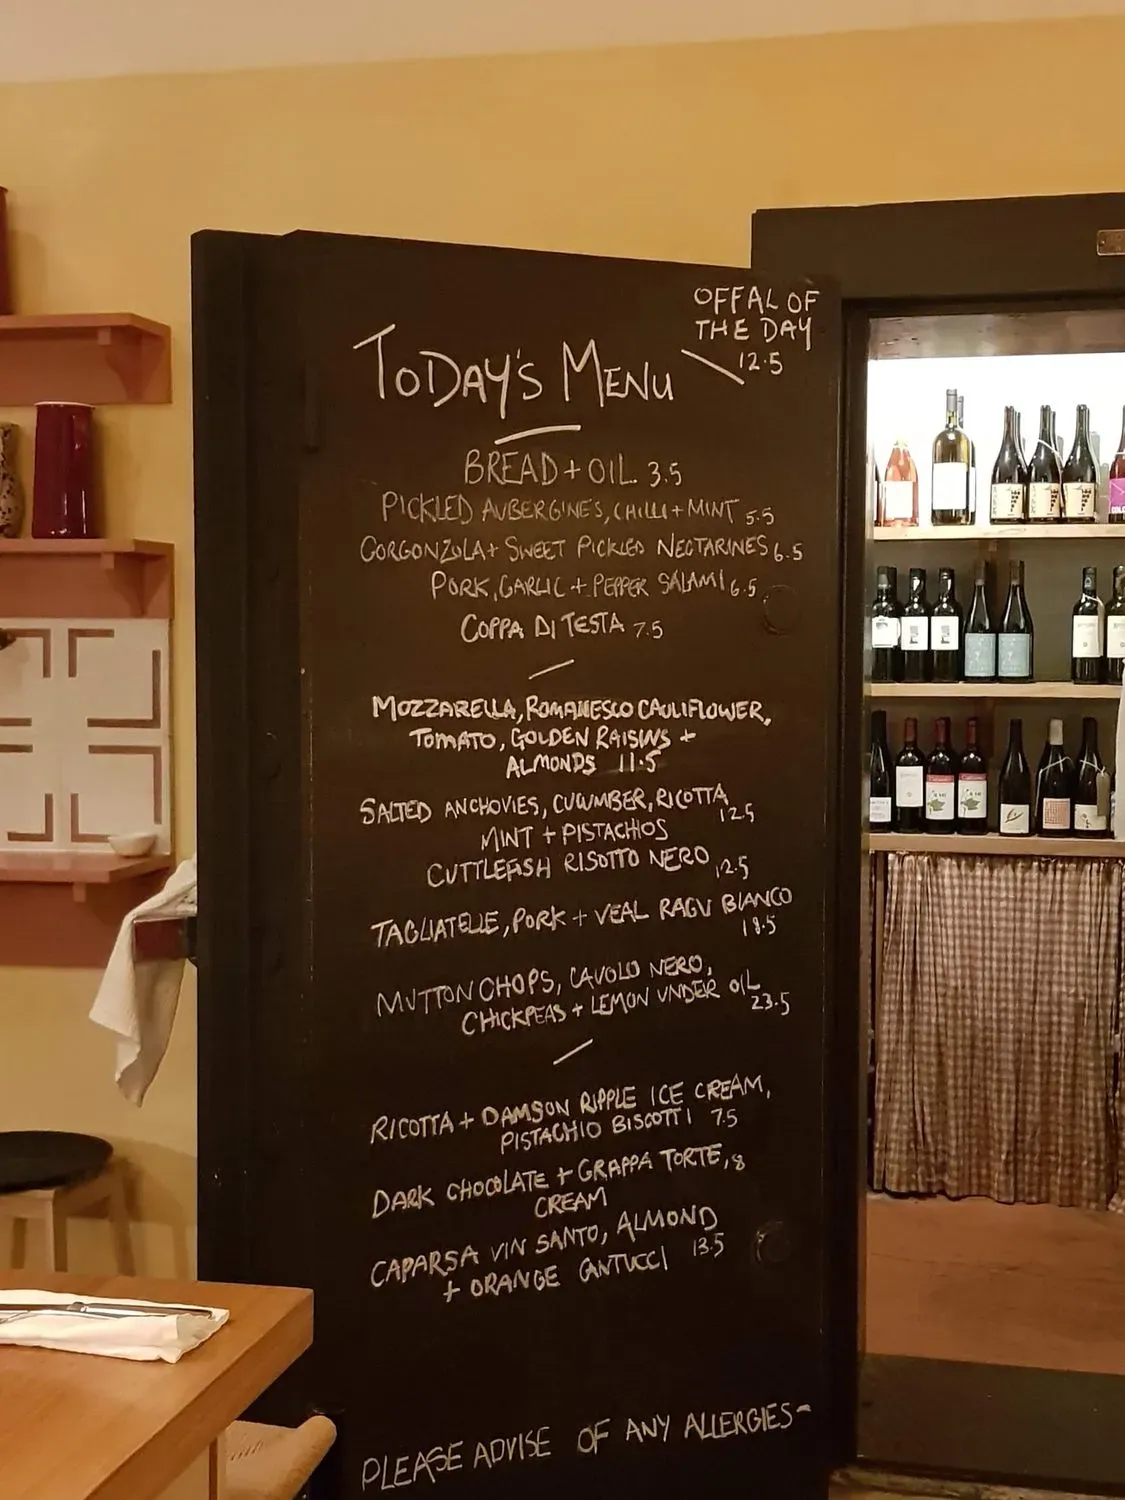 OFFAL OF
THE DAY
12.5
TODAY'S MENU
BREAD + OIL 3.5
PICKLED AUBERGINES, CHILLI + MINT 5.5
GORGONZOLA + SWEET PICKLED NECTARINES 6.5
PORK, GARLIC + PEPPER SALAMI 6.5
COPPA DI TESTA 7.5
MOZZARELLA, ROMANESCO CAULIFLOWER,
TOMATO, GOLDEN RAISINS +
ALMONDS 11.5
SALTED ANCHOVIES, CUCUMBER, RICOTTA
MINT + PISTACHIOS 12.5
CUTTLEFISH RISOTTO NERO 12.5
TAGLIATELLE, PORK + VEAL RAGU BIANCO
18.5
MUTTON CHOPS, CAVOLO NERO,
CHICKPEAS + LEMON UNDER OIL 23.5
RICOTTA + DAMSON RIPPLE ICE CREAM,
PISTACHIO BISCOTTI 7.5
DARK CHOCOLATE + GRAPPA TORTE, 8
CREAM
CAPARSA VIN SANTO, ALMOND
+ ORANGE CANTUCCI 13.5
PLEASE ADVISE OF ANY ALLERGIES-